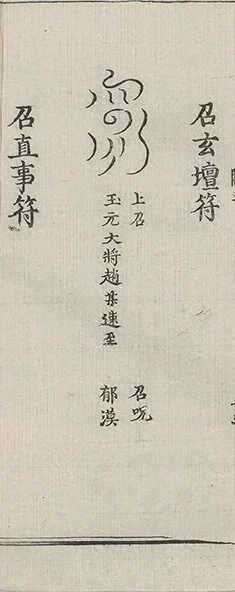 召玄壇符
上召
玉元大將趙某速至
召呪
郁漠
召直事符